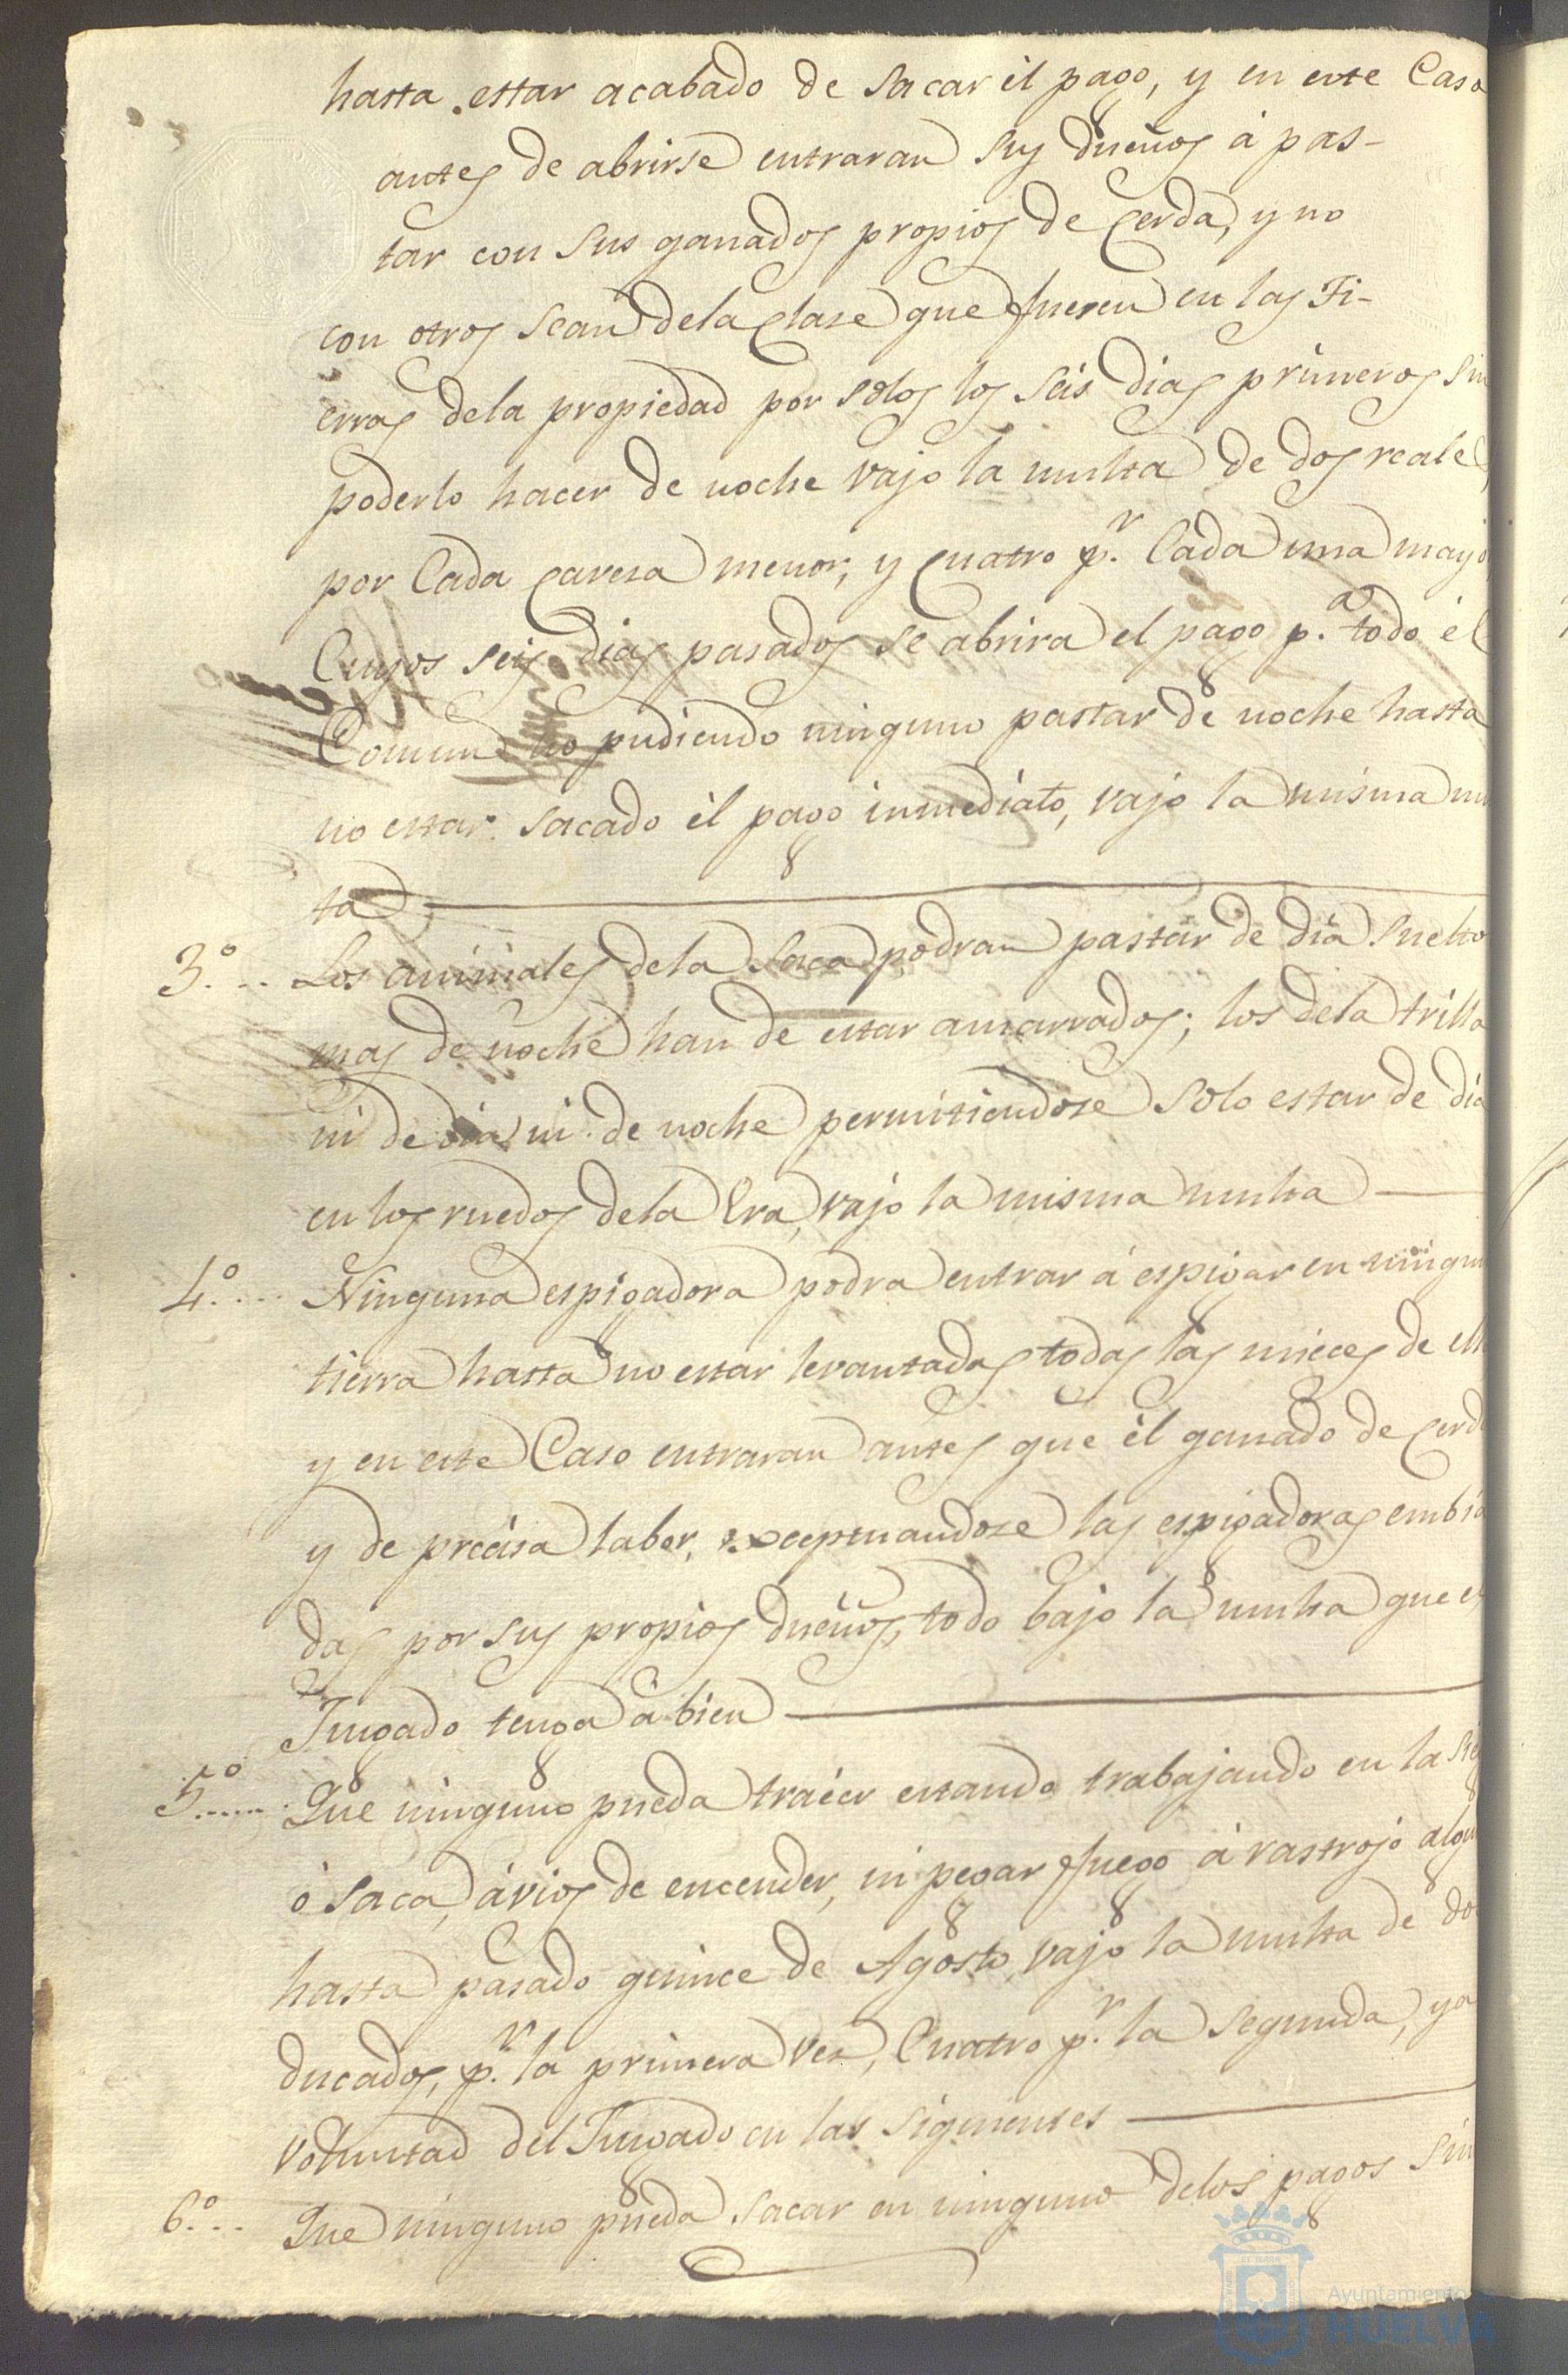 hasta estar acabado de sacar él pago, y en este Caso
antes de abrirse entraran sus dueños á pas-
tar con sus ganados propios de Cerda, y no
con otros sean dela Clase que fueren en las Ti-
erras dela propiedad por solos los seis dias primeros sin
poderlo hacer de noche vajo la multa de dos reales
por Cada Cavesa menor, y Cuatro p.r Cada una mayo
Cuyos seis dias pasados se abrira el pago p.a todo él
Comun no pudiendo ninguno pastar de noche hasta
no estar sacado él pago inmediato, vajo la misma mu
ta
3.º... Los animales dela Saca podran pastar de dia suelto
mas de noche han de estar amarrados; los dela trilla
ni de dia ni de noche permitiendose solo estar de dia
en los ruedos dela Era, vajo la misma multa
4.º.... Ninguna espigadora podra entrar á espigar en ningun
tierra hasta no estar levantadas todas las mieces de ell
y en este Caso entraran antes que él ganado de Cerd
y de precisa labor, exceptuandose las espigadoras embia
das por sus propios dueños, todo bajo la multa que el
Jusgado tenga á bien
5.º..... Que ninguno pueda traéer estando trabajando en la sie
ó saca, ávios de encender, ni pegar fuego á rastrojo algu
hasta pasado quince de Agosto, vajo la multa de do
ducados, p.r la primera ves, Cuatro p.r la segunda, y a
voluntad del Jusgado en las siguientes
6.º... Que ninguno pueda sacar en ninguno delos pagos sin
Ayuntamiento de
HUELVA